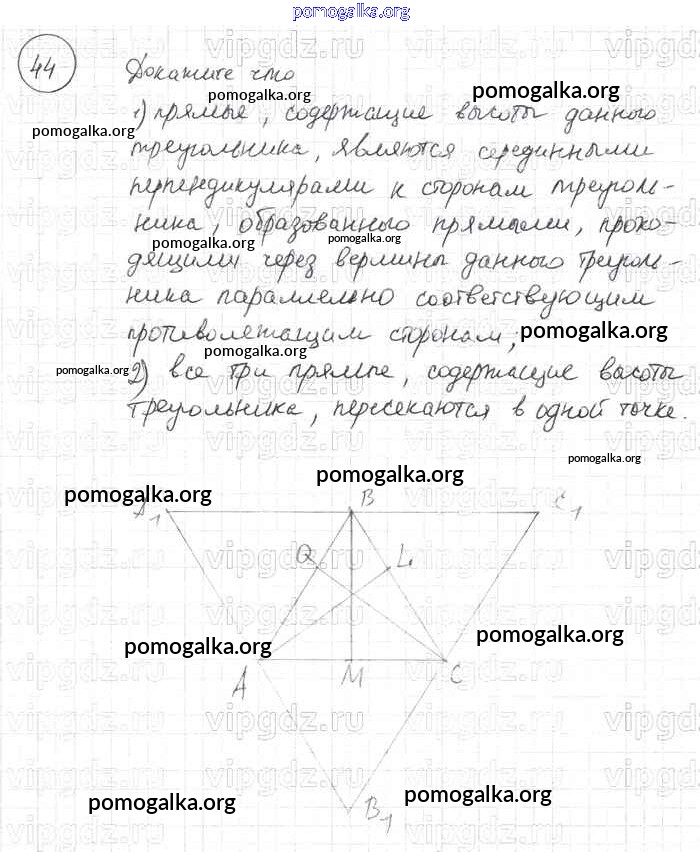 pomogalka.org
44
Докажите что
pomogalka.org
pomogalka.org
1) прямые, содержащие высоты данного
pomogalka.org
треугольника, являются серединными
перпендикулярами к сторонам треуголь-
ника, образованного прямыми, прохо-
pomogalka.org
pomogalka.org
дящими через вершины данного треуголь-
ника параллельно соответствующим
противолежащим сторонам;
pomogalka.org
pomogalka.org
pomogalka.org
2) все три прямые, содержащие высоты
треугольника, пересекаются в одной точке.
pomogalka.org
pomogalka.org
pomogalka.org
A1 B C1
Q L
pomogalka.org
pomogalka.org
A M C
pomogalka.org
pomogalka.org
B1
vipgdz.ru